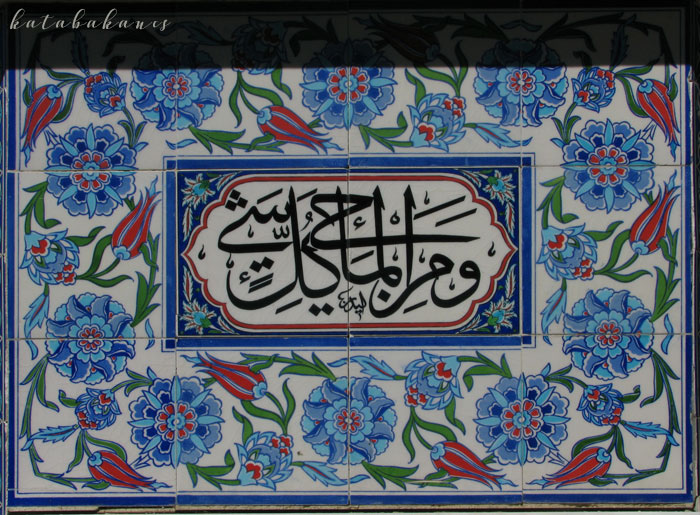 katabakanes
ومن الماء كل شيء حي